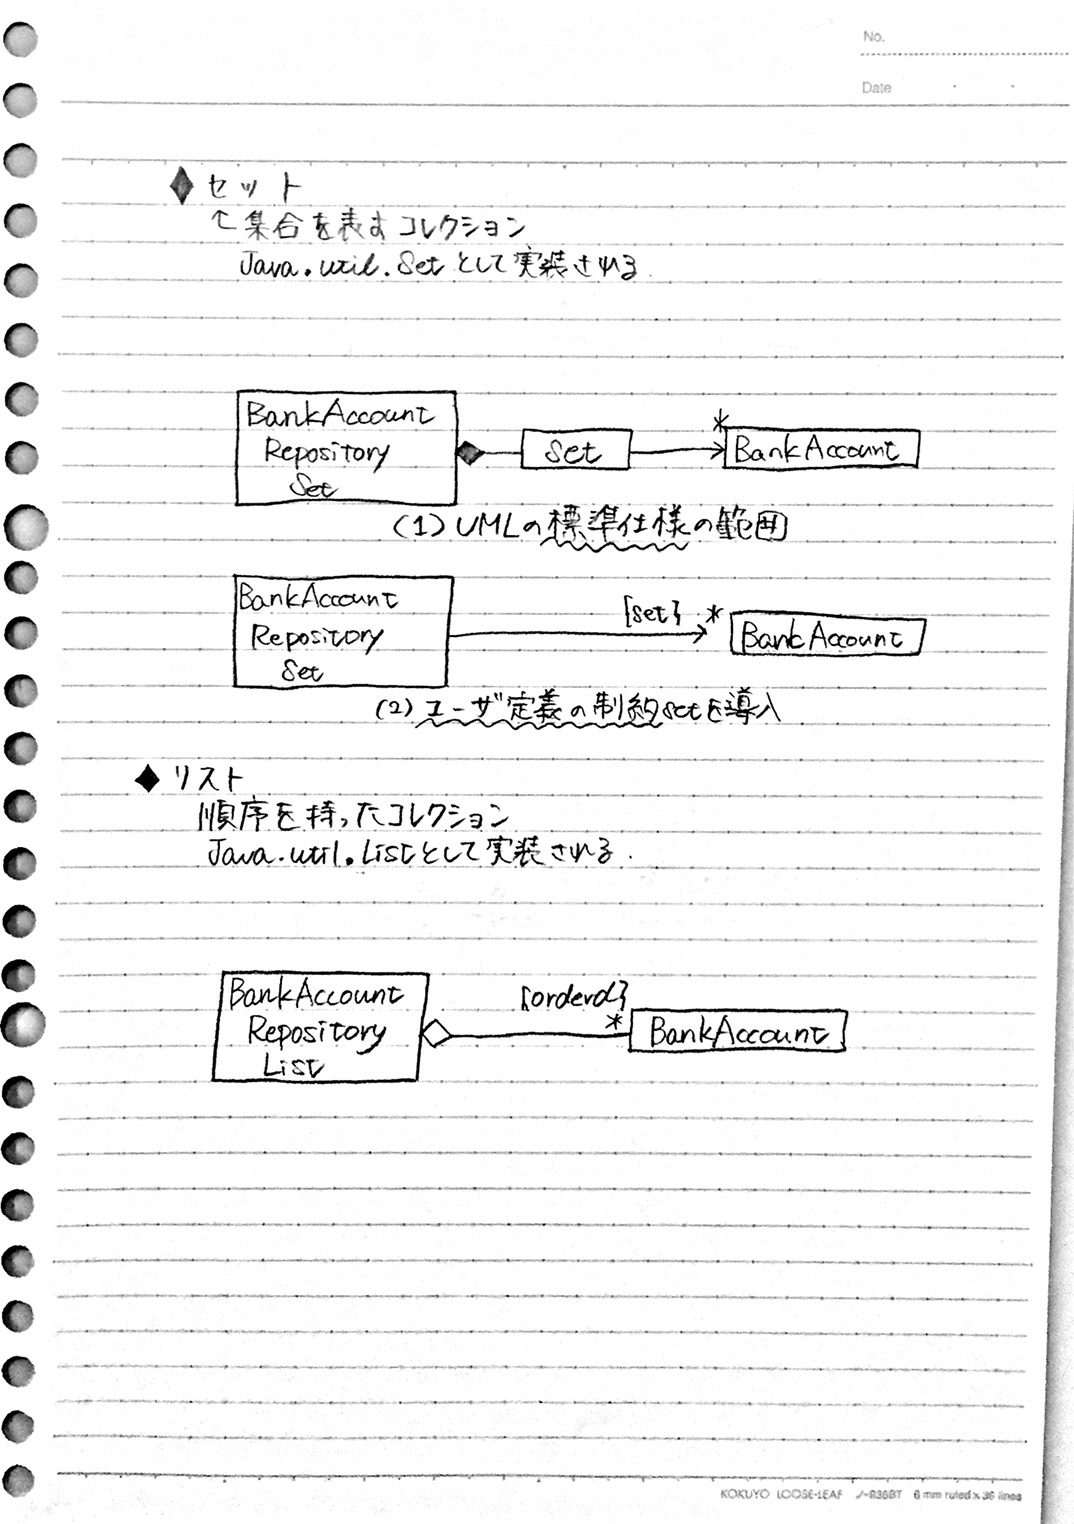 No.
Date
◆ セット
↑ 集合を表すコレクション
Java.util.Setとして実装される.
BankAccount
Repository
Set
Set
*
BankAccount
(1) UMLの標準仕様の範囲
BankAccount
Repository
Set
{set}
*
BankAccount
(2) ユーザ定義の制約setを導入
◆ リスト
順序を持ったコレクション
Java.util.Listとして実装される.
BankAccount
Repository
List
{orderd}
*
BankAccount
KOKUYO LOOSE-LEAF ノ-836BT 6 mm ruled x 36 lines